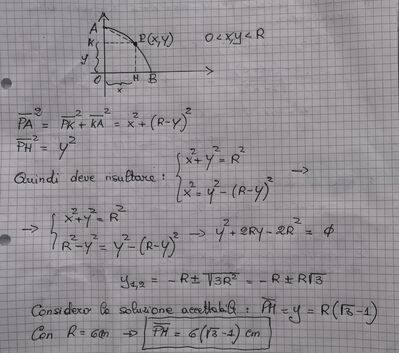 A
K P(x,y) 0 < x,y < R
y
O H B
x
PA² = PK² + KA² = x² + (R-y)²
PH² = y²
Quindi deve risultare: { x²+y² = R²
x² = y² - (R-y)² →
→ { x²+y² = R²
R²-y² = y² - (R-y)² → y² + 2Ry - 2R² = ϕ
y₁,₂ = -R ± √3R² = -R ± R√3
Considero la soluzione accettabile: PH = y = R(√3-1)
Con R = 6cm ⇒ PH = 6(√3-1) cm